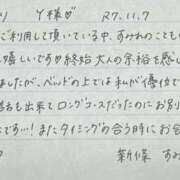 り Y様♡ R7.11.7
ご利用して頂いている中、すみれのことも
嬉しいです♡終始大人の余裕を感じ
ましたが、ベッドの上では私が優位で
も出来てロングコースだったのにお別
です…!またタイミングの合う時にお会
新條 すみ